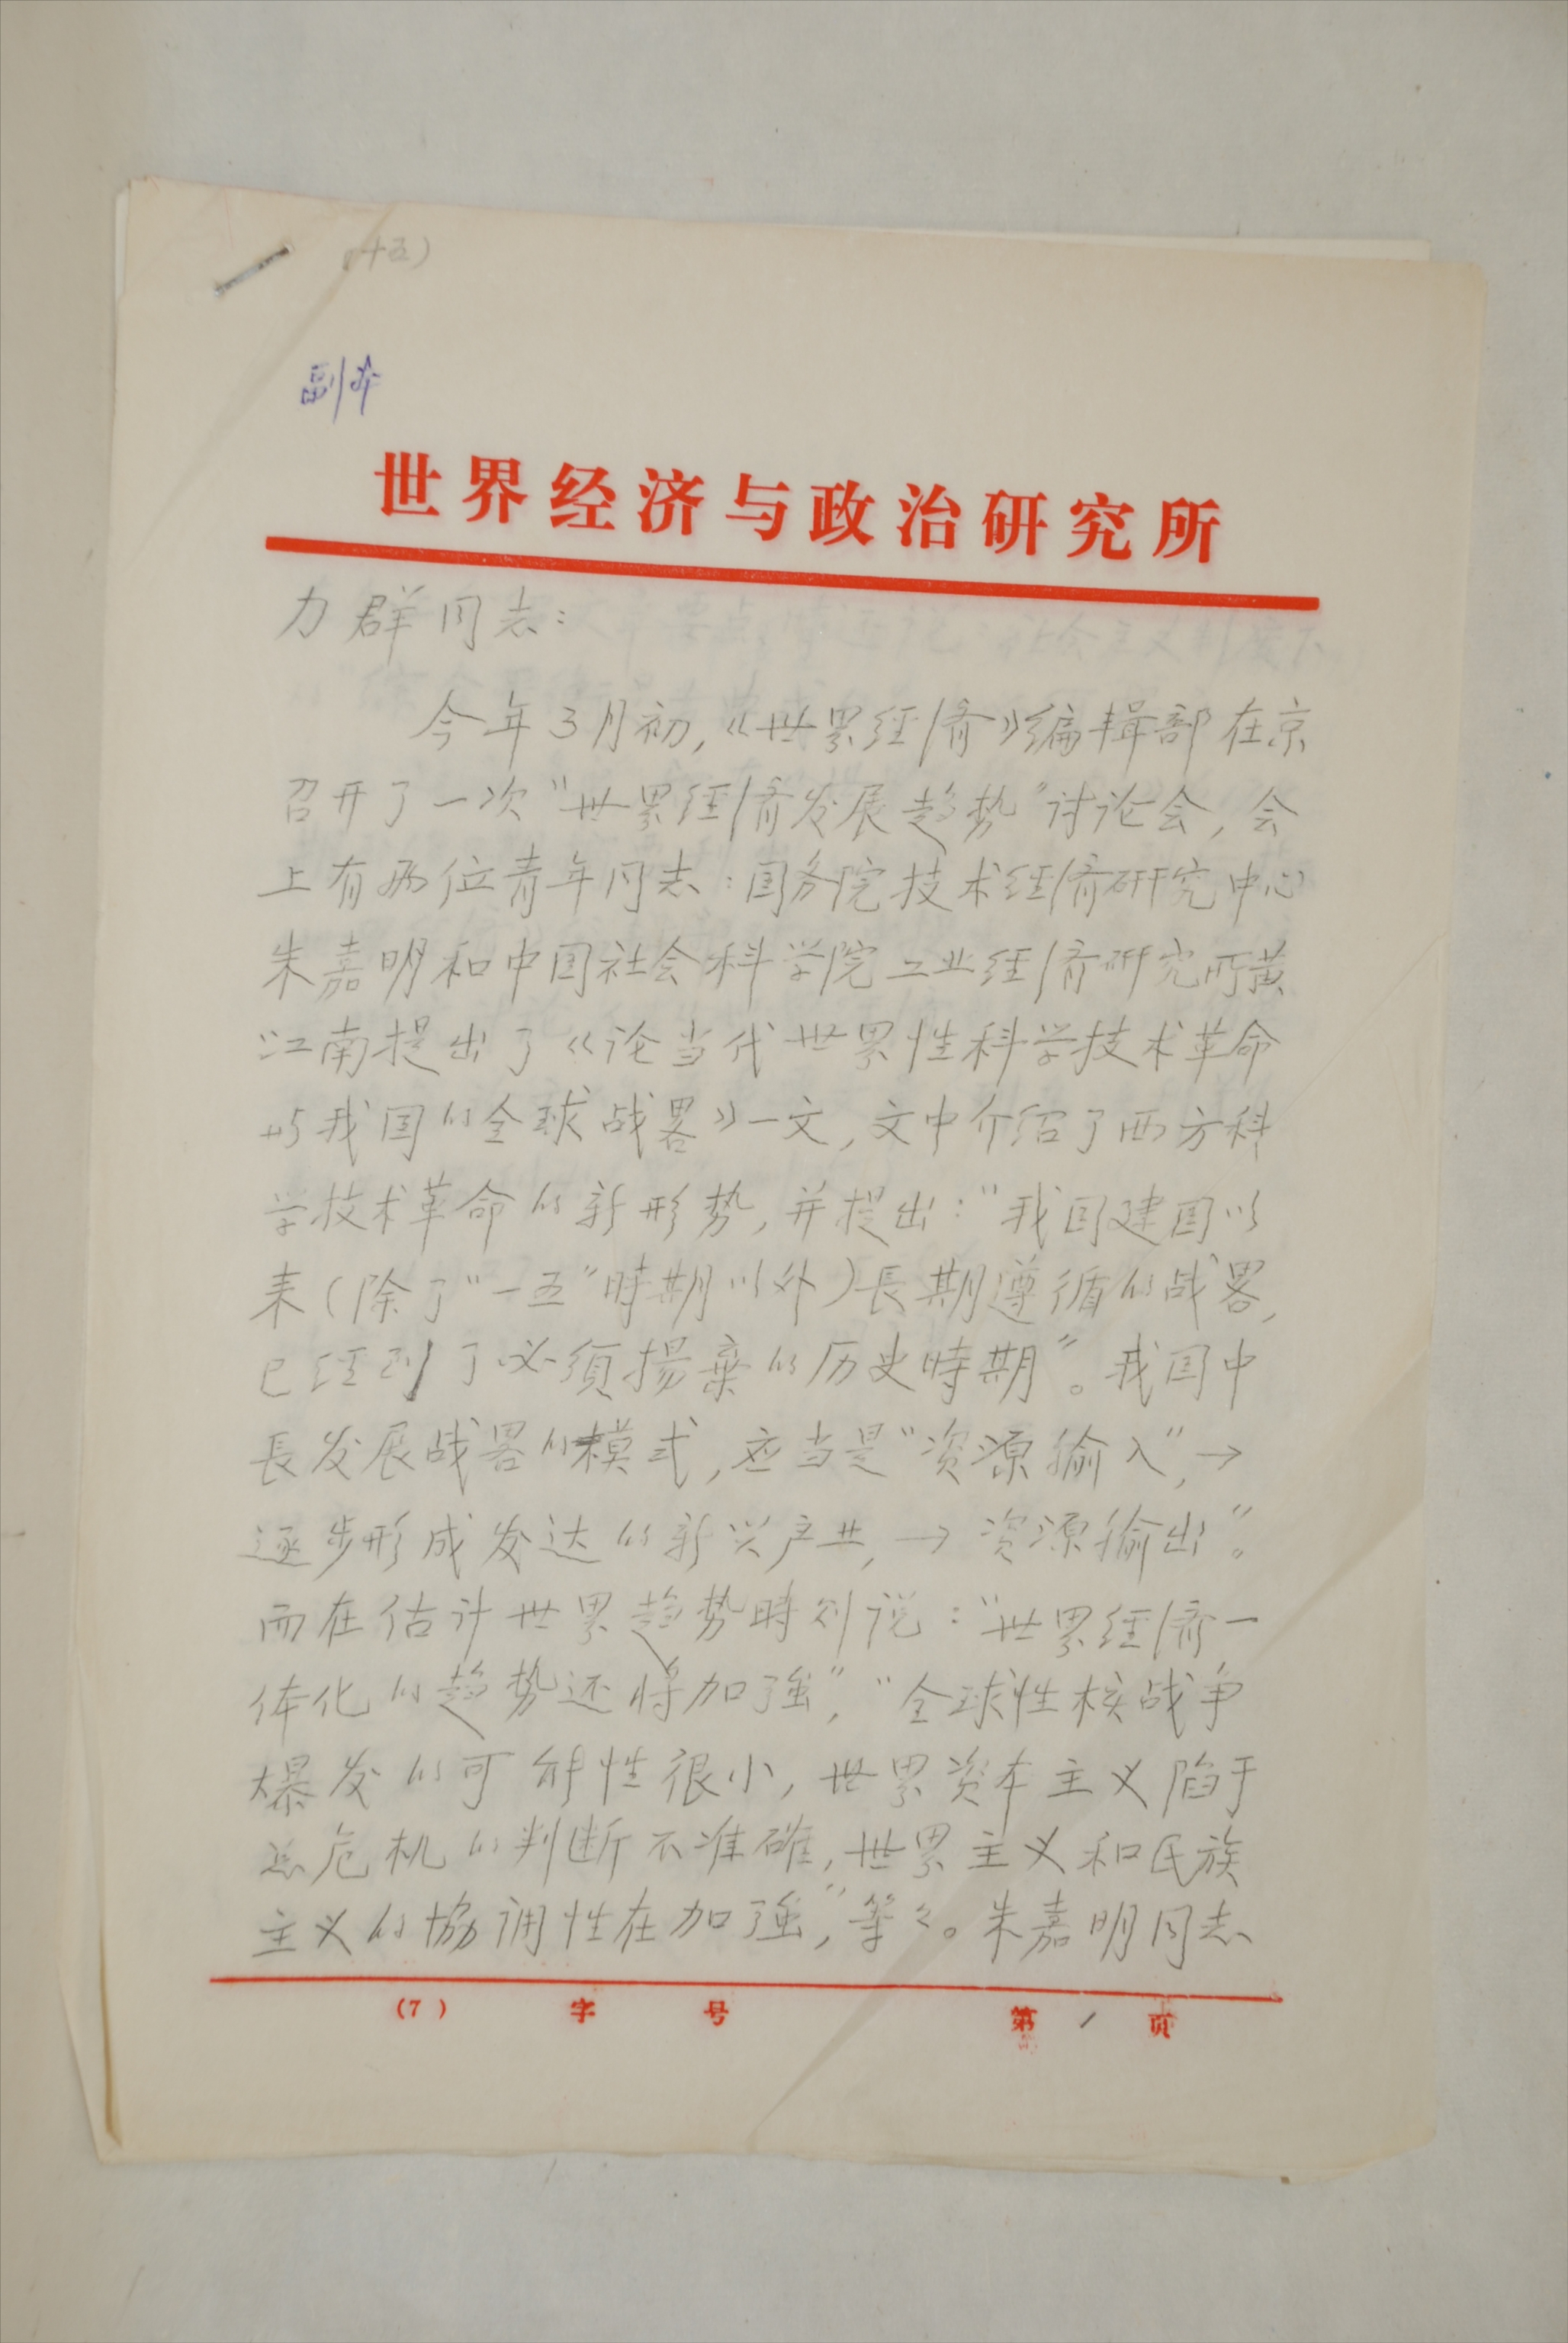 (十五)
副本
世界经济与政治研究所
力群同志：
今年3月初，《世界经济》编辑部在京
召开了一次“世界经济发展趋势”讨论会，会
上有两位青年同志：国务院技术经济研究中心
朱嘉明和中国社会科学院工业经济研究所黄
江南提出了《论当代世界性科学技术革命
与我国的全球战畧》一文，文中介绍了西方科
学技术革命的新形势，并提出：“我国建国以
来（除了“一五”時期以外）長期遵循的战畧，
已经到了必須揚棄的历史時期”。我国中
長发展战畧的模式，应当是“资源输入”，→
逐步形成发达的新兴产业，→资源输出”。
而在估计世界趋势時则说：“世界经济一
体化的趋势还将加強”，“全球性核战争
爆发的可能性很小，世界资本主义陷于
总危机的判断不准确，世界主义和民族
主义的協调性在加強”，等々。朱嘉明同志
(7) 字 号 第 1 页